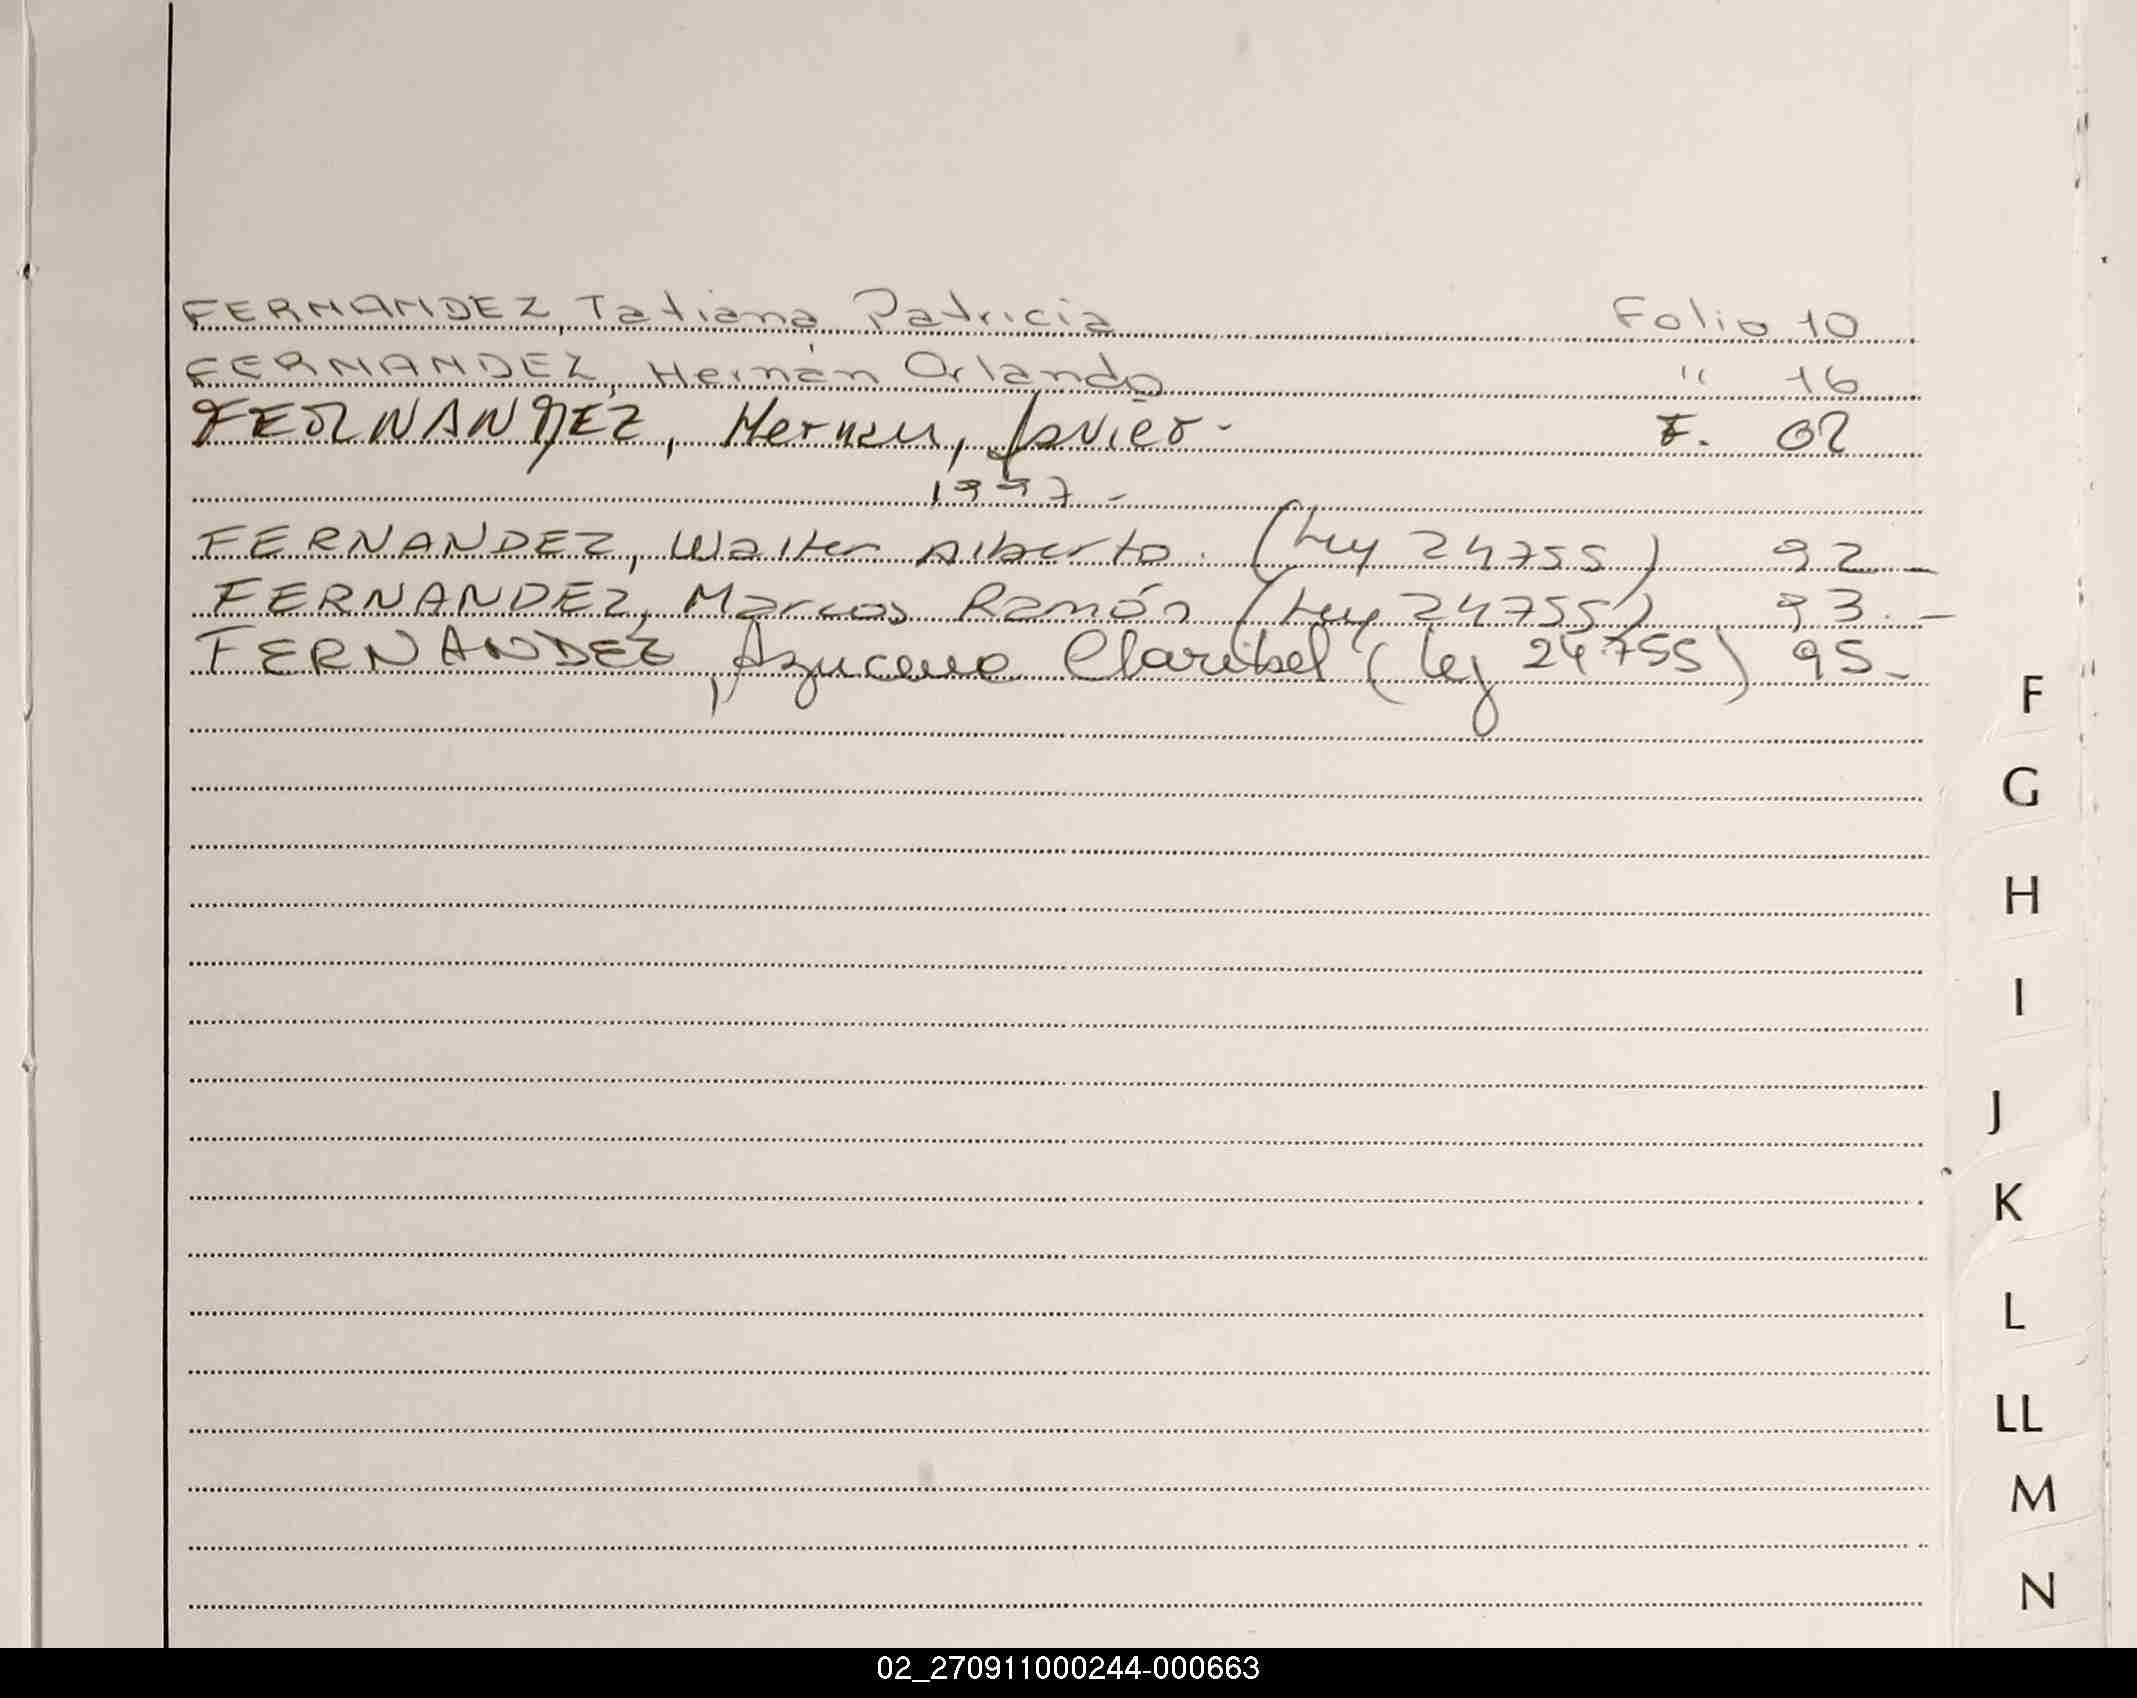 FERNANDEZ, Tatiana Patricia Folio 10
FERNANDEZ, Hernán Orlando " 16
FERNANDEZ, Hernan, Javier - F. 02
1997 -
FERNANDEZ, Walter Alberto. (Ley 24755) 92 -
FERNANDEZ, Marcos Ramón (Ley 24755) 93. -
FERNANDEZ, Azucena Claribel (Ley 24.755) 95 -
F
G
H
I
J
K
L
LL
M
N
02_270911000244-000663